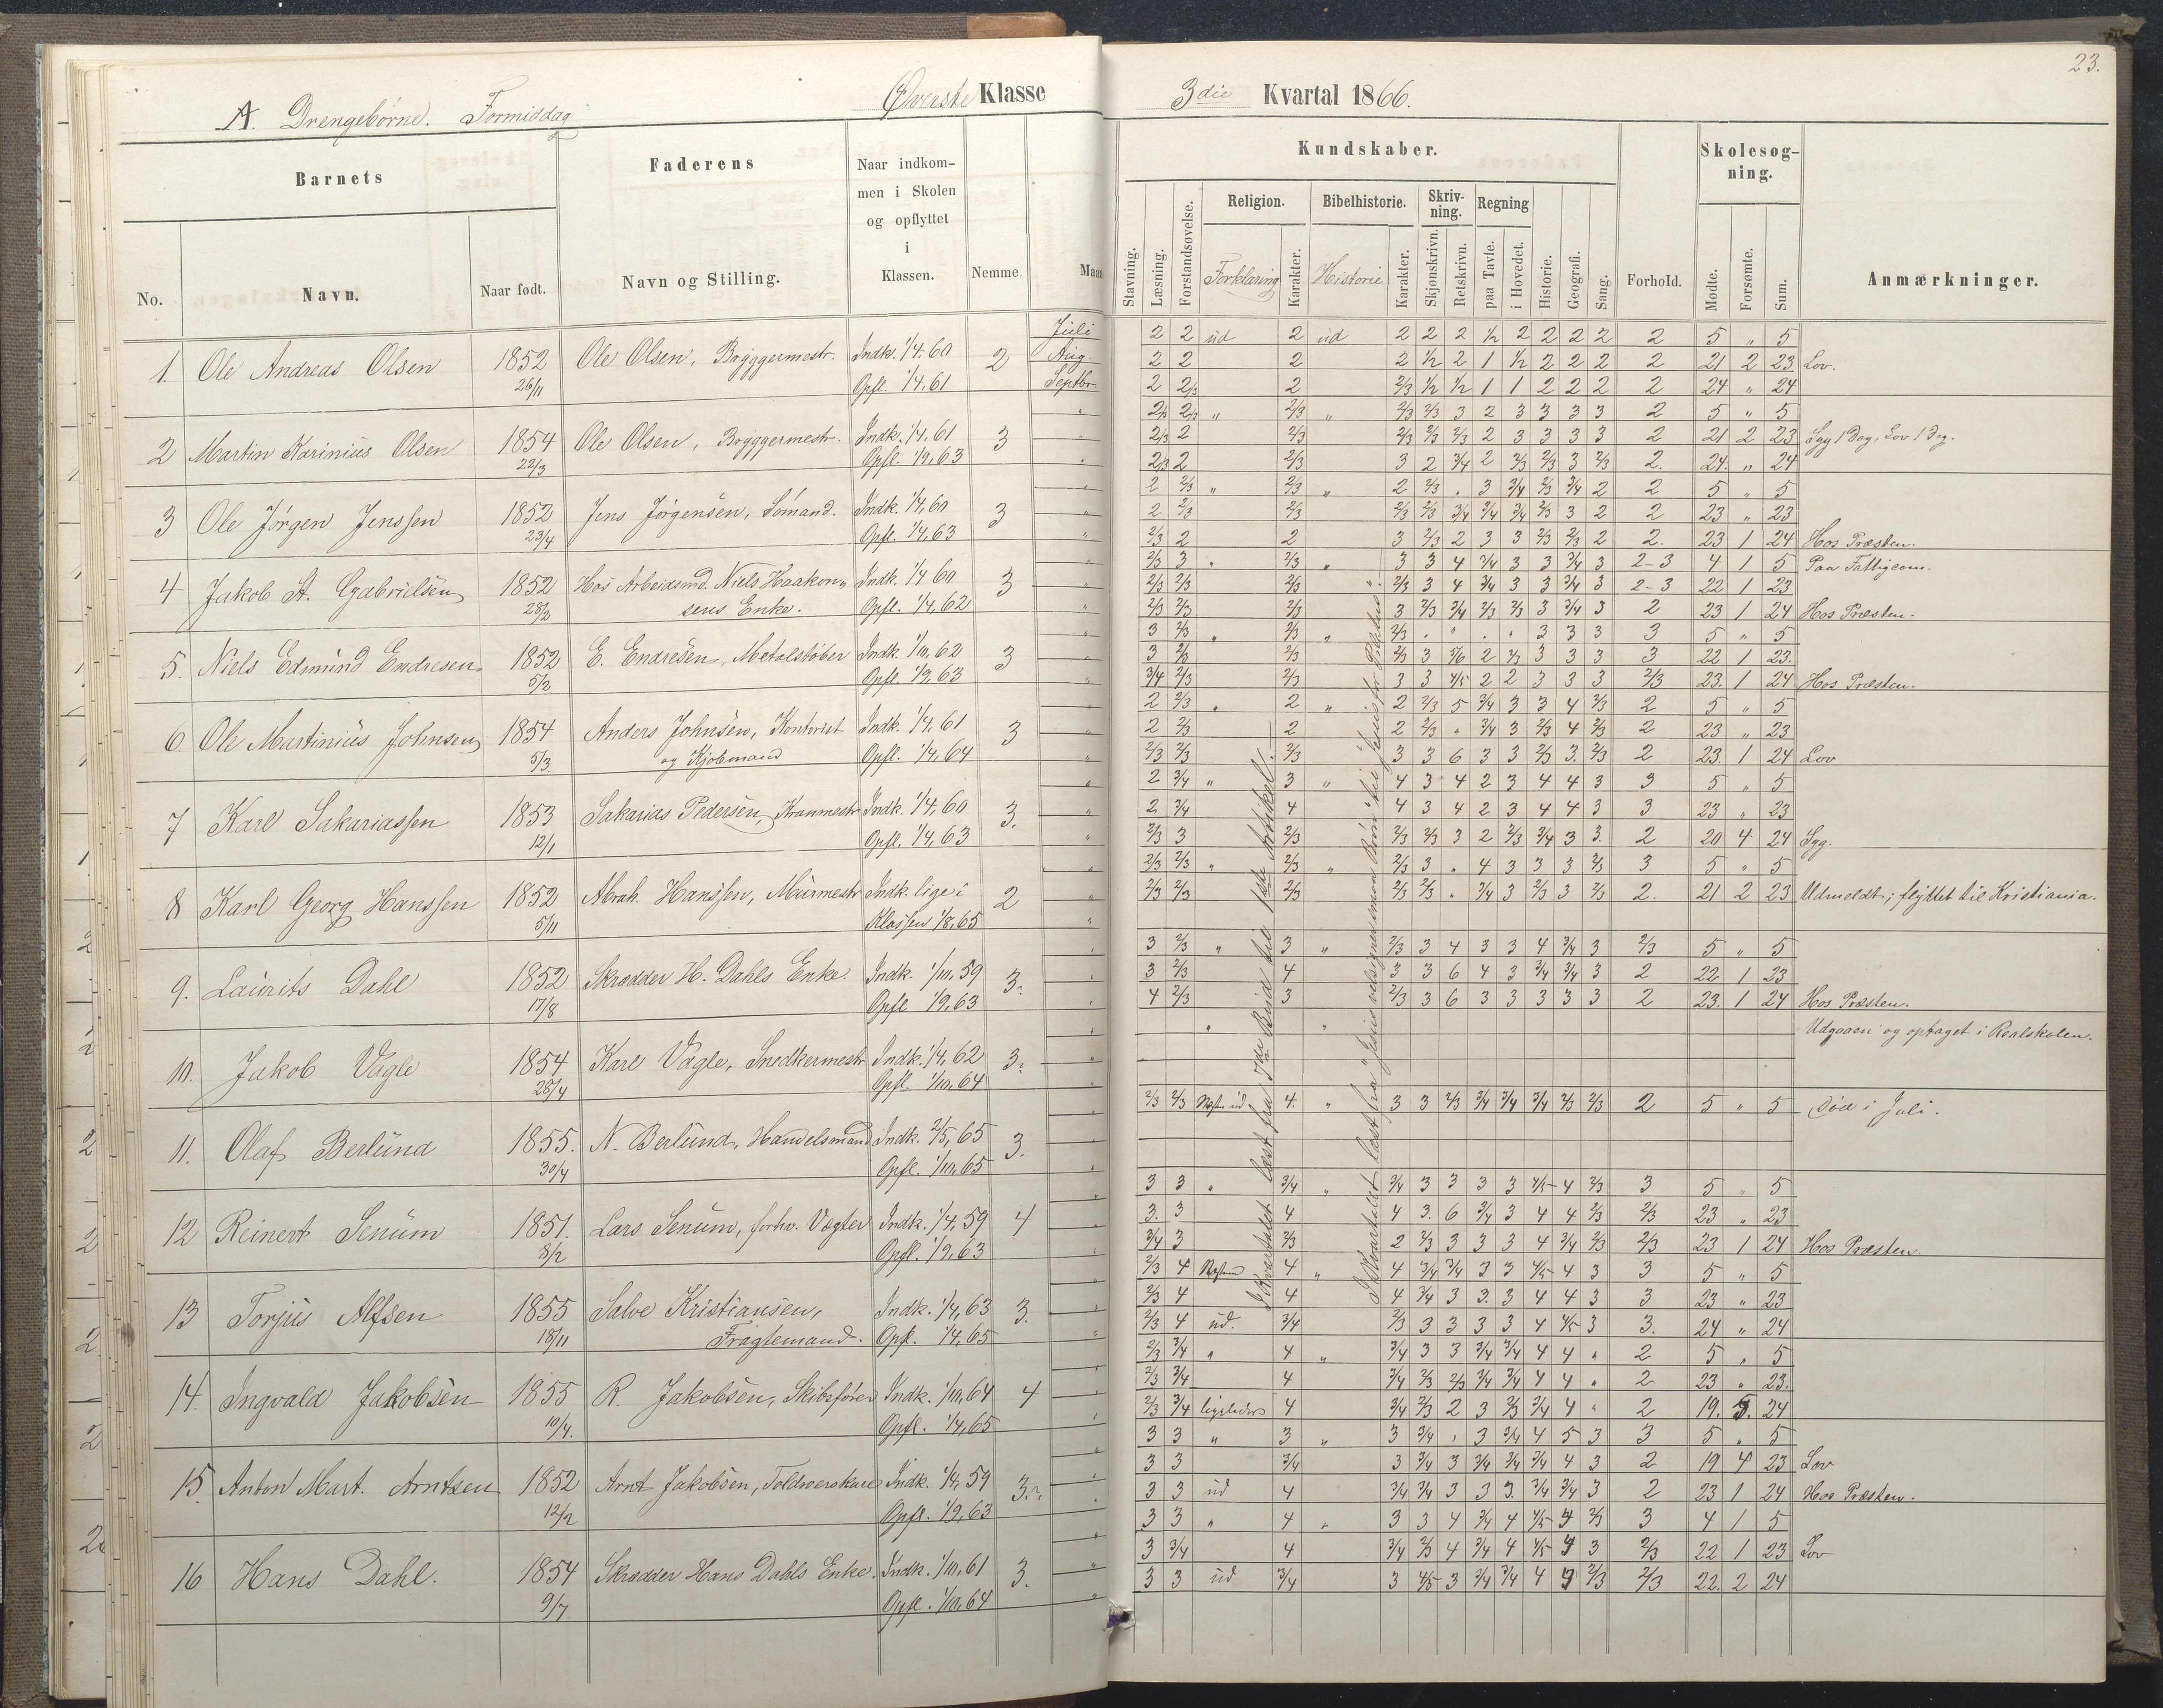 23.
A. Drengebørne. Formiddag
Øverste Klasse
3die Kvartal 1866.
Barnets
Faderens
Naar indkom-
men i Skolen
og opflyttet
i
Klassen.
Nemme.
No.
Navn.
Naar født.
Navn og Stilling.
Kundskaber.
Skolesøg-
ning.
Religion.
Bibelhistorie.
Skriv-
ning.
Regning
Stavning.
Læsning.
Forstandsøvelse.
Forklaring
Karakter.
Historie
Karakter.
Skjønskrivn.
Retskrivn.
paa Tavle.
i Hovedet.
Historie.
Geografi.
Sang.
Forhold.
Mødte.
Forsømte.
Sum.
Anmærkninger.
1. Ole Andreas Olsen 1852 26/11 Ole Olsen, Bryggermestr. Indk. 1/4.60 Opfl. 1/4,61 2
Juli 2 2 ud 2 ud 2 2 2 1/2 2 2 2 2 2 5 " 5
Aug. 2 2 2 2 1/2 2 1 1/2 2 2 2 2 21 2 23 Lov.
Septbr. 2 2/3 2 2/3 1/2 1/2 1 1 2 2 2 2 24 " 24
2 Martin Karinius Olsen 1854 22/3 Ole Olsen, Bryggermestr. Indk. 1/4,61 Opfl. 1/9,63 3
2/3 2/3 " 2/3 " 2/3 2/3 3 2 3 3 3 3 2 5 " 5
2/3 2 2/3 2/3 2/3 2/3 2 3 3 3 3 2 21 2 23 Syg 1 Dag, Lov 1 Dag.
2/3 2 2/3 3 2 3/4 2 2/3 2/3 3 2/3 2. 24. " 24
3 Ole Jørgen Jenssen 1852 23/4 Jens Jørgensen, Sømand. Indk. 1/4,60 Opfl. 1/4,63 3
2 2/3 " 2/3 " 2 2/3 . 3 3/4 2/3 3/4 2 2 5 " 5
2 2/3 2/3 2/3 2/3 3/4 3/4 3/4 2/3 3 2 2 23 " 23
2/3 2 2 3 2/3 2 3 3 2/3 2/3 2 2. 23 1 24 Hos Præsten.
4 Jakob St. Gabrielsen 1852 28/2 Hos Arbeidsmd. Niels Haakon-
sens Enke. Indk. 1/4 60 Opfl. 1/4,62 3
2/3 3 " 2/3 " 3 3 4 3/4 3 3 3/4 3 2-3 4 1 5 Paa Fattigcom.
2/3 2/3 2/3 2/3 3 4 3/4 3 3 3/4 3 2-3 22 1 23
2/3 2/3 2/3 3 2/3 3/4 2/3 2/3 3 3/4 3 2 23 1 24 Hos Præsten.
5. Niels Edmund Endresen 1852 5/3 E. Endresen, Metalstøber Indk. 1/10,62 Opfl. 1/9,63 3
3 2/3 " 2/3 " 2/3 . " . " 3 3 3 3 5 " 5
3 2/3 2/3 2/3 3 5/6 2 2/3 3 3 3 3 22 1 23.
3/4 2/3 2/3 3 3 4/5 2 2 3 3 3 2/3 23. 1 24 Hos Præsten.
6 Ole Martinius Johnsen 1854 5/3. Anders Johnsen, Kontorist
og Kjøbmand Indk. 1/4,61 Opfl. 1/4,64 3
2 2/3 " 2 " 2 2/3 5 3/4 3 3 4 2/3 2 5 " 5
2 2/3 2 2 2/3 " 3/4 3 2/3 4 2/3 2 23 " 23
2/3 2/3 2/3 3 3 6 3 3 2/3 3. 2/3 2 23. 1 24 Lov
7 Karl Sakariassen 1853 12/1 Sakarias Pedersen, Kranmestr Indk. 1/4,60 Opfl. 1/4,63 3.
2 3/4 " 3 " 4 3 4 2 3 4 4 3 3 5 " 5
2 3/4 4 4 3 4 2 3 4 4 3 3 23 " 23
2/3 3 2/3 2/3 2/3 3 2 2/3 3/4 3 3. 2 20 4 24 Syg.
8 Karl Georg Hanssen 1852 5/11 Abrah. Hanssen, Murmestr Indk. lige i
Klassen 1/8,65 2
2/3 2/3 " 2/3 " 2/3 3 " 4 3 3 3 2/3 3 5 " 5
2/3 2/3 2/3 2/3 2/3 " 3/4 3 2/3 3 2/3 2. 21 2 23 Udmeldt; flyttet til Kristiania.
9. Laurits Dahl 1852 17/8 Skrædder H. Dahls Enke. Indk. 1/10,59 Opfl 1/9,63 3.
3 2/3 " 3 " 2/3 3 4 3 3 4 3/4 3 2/3 5 " 5
3 2/3 4 3 3 6 4 3 3/4 3/4 3 2 22 1 23
4 2/3 3 2/3 3 6 3 3 3 3 3 2 23. 1 24 Hos Præsten.
10. Jakob Vagle 1854 28/4 Karl Vagle, Snedkermestr Indk. 1/4,62 Opfl 1/10,64 3.
Udgaaen og optaget i Realskolen.
11. Olaf Berlund 1855. 30/4 N. Berlund, Handelsmand Indk. 2/5,65 Opfl. 1/10,65 3.
2/3 2/3 Næsten ud. 4. " 3 3 2/3 3/4 3/4 3/4 2/3 2/3 2 5 " 5 Død i Juli.
12 Reinert Senum 1851. 8/2 Lars Senum, forhv. Vægter Indk. 1/4,59 Opfl. 1/9,63 4
3 3 " 3/4 " 3/4 3 3 3 3 4/5 4 2/3 3 5 " 5
3. 3 4 4 3. 6 3/4 3 4 4 2/3 2/3 23 " 23
3/4 3 2/3 2 2/3 3 3 3 4 3/4 2/3 2/3 23 1 24 Hos Præsten.
13 Torjus Alfsen 1855 18/11 Salve Kristiansen,
Fragtemand. Indk. 1/4,63 Opfl. 1/4,65 3.
2/3 4 4 " 4 3/4 3/4 3 3 4/5 4 3 3 5 " 5
2/3 4 4 4 3/4 3 3. 3 4 4 3 3 23 " 23
2/3 4 ud. 3/4 2/3 3 3 3 3 4 4/5 3 3. 24 " 24
14. Ingvald Jakobsen 1855 10/4. R. Jakobsen, Skibsfører Indk. 1/10,64 Opfl. 1/4,65 4
2/3 3/4 " 4 " 3/4 3 3 3/4 3/4 4 4 " 2 5 " 5
2/3 3/4 4 3/4 2/3 2/3 3/4 3/4 4 4 " 2 23 " 23.
2/3 3/4 ligeledes 4 3/4 2/3 2 3 2/3 3/4 4 " 2 19. 5. 24
15. Anton Mart. Arntsen 1852 12/2 Arnt Jakobsen, Toldroerskarl Indk. 1/4,59 Opfl. 1/9,63 3.
3 3 " 3 " 3 3/4 " 3 3/4 4 5 3 3 5 " 5
3 3 3/4 3 3/4 3 3/4 3/4 3/4 4 3 2 19 4 23 Lov
3 3 ud 4 3/4 3/4 3 3 3. 3/4 3/4 3 2 23 1 24 Hos Præsten.
16 Hans Dahl. 1854 9/7 Skrædder Hans Dahls Enke. Indk. 1/10,61 Opfl. 1/10,64 3.
3 3 " 4 " 3 3 4 3/4 4 4/5 4 2/3 3 4 1 5
3 3/4 4 3/4 2/3 4 3/4 4 4/5 4 3 2/3 22 1 23 Lov
3 3 ud 3/4 3 4/5 3 3/4 3/4 4 4 2/3 2/3 22. 2 24
I Kvartalet læst fra 3die Bud til 1ste Artikel.
I Kvartalet læst fra "Jesus velsigner smaa Børn" til "Jesus for Pilatus".